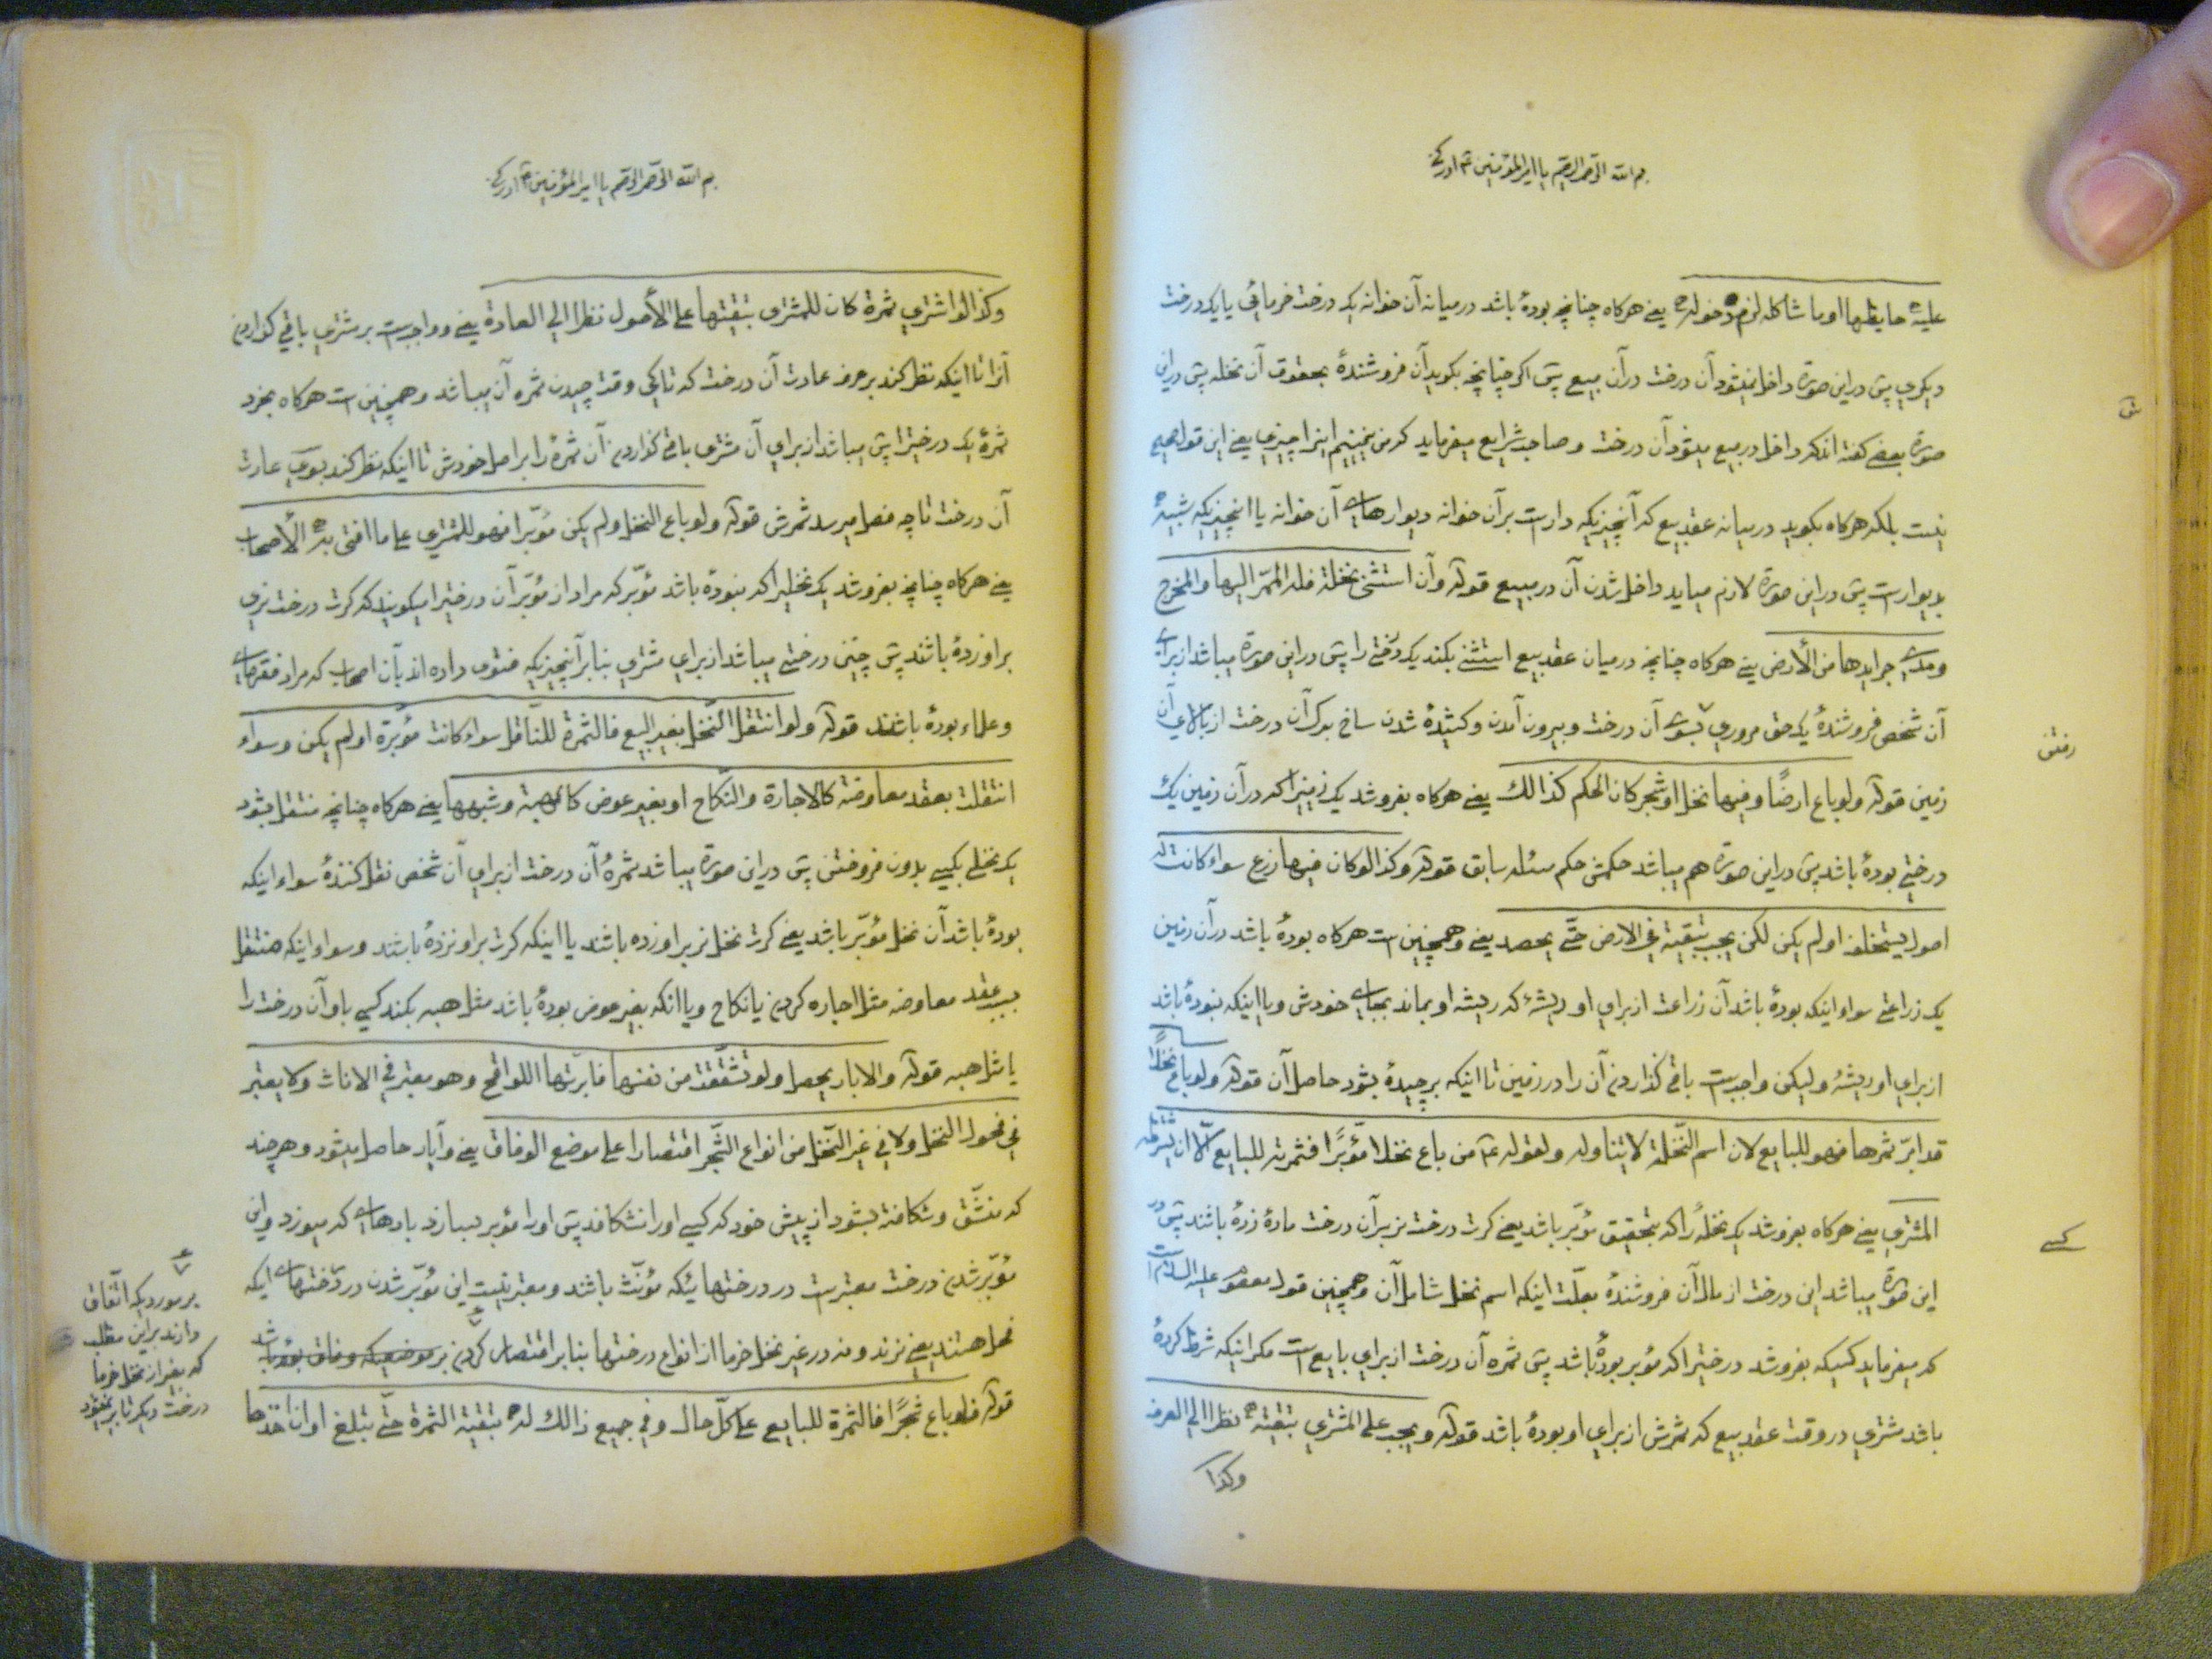 بسم الله الرحمن الرحیم یا امیر المؤمنین ادرکنی
علیه حایطها او ما شاکله لزم دخوله یعنی هرکاه چنانچه بودهٔ باشد در میانه آن خوانه یک درخت خرمائی یا یک درخت
دیکری پش در این صورة داخل نمیشود آن درخت در آن مبیع پش اکر چنانچه بکوید آن فروشندهٔ بحقوق آن نخله پش در این
صورة بعضی کفته اند که داخل در مبیع میشود آن درخت و صاحب شرایع میفرماید که من نمیبینم اینرا چیزی یعنی این قول صحیح
نیست بلکه هرکاه بکوید در میانه عقد بیع که آنچیزیکه دار است بر آن خوانه دیوارهای آن خوانه یا انچیزیکه شبیهٔ
بدیوار است پش در این صورة لازم میاید داخل شدن آن در مبیع قوله و آن استثنی نخلة فله الممرّ الیها و المخرج
و مدی جرایدها من الأرض یعنی هرکاه چنانچه در میان عقد بیع استثنی بکند یک درختی را پش در این صورة میباشد از برای
آن شخص فروشندهٔ یک حق مروری بسوی آن درخت و بیرون آمدن و کشیدهٔ شدن ساخ برک آن درخت از بالای آن
رفتن
زمین قوله و لو باع ارضًا و فیها نخل او شجر کان الحکم کذالک یعنی هرکاه بفروشد یک زمینرا که در آن زمین یک
درختی بودهٔ باشد پش در این صورة هم میباشد حکمش حکم مسئله سابق قوله و کذا لو کان فیها زرع سواء کانت له
اصول یستخلف او لم یکن لکن یجب تبقیته فی الارض حتّی یحصد یعنی و همچنین است هرکاه بودهٔ باشد در آن زمین
یک زراعتی سواء اینکه بودهٔ باشد آن زراعت از برای او ریشهٔ که ریشه او بماند بجای خودش و یا اینکه نبودهٔ باشد
از برای او ریشهٔ و لیکن واجبست باقی کذاردن آن را در زمین تا اینکه برچیدهٔ بشود حاصل آن قوله و لو باع نخلًا
قد ابّر ثمرها فهو للبایع لان اسم النّخلة لا یتناوله و لقوله ع من باع نخلا مؤبّرًا فثمرته للبایع الّا ان یشترطه
المشتری یعنی هرکاه بفروشد یک نخلهٔ را که بتحقیق مؤبّر باشد یعنی کرت درخت نر بر آن درخت مادهٔ زدهٔ باشند پش در
این صورة میباشد این درخت از مال آن فروشندهٔ بعلّت اینکه اسم نخل شامل آن و همچنین قول معصوم علیه السلام است
که میفرماید کسیکه بفروشد درختیرا که مؤبر بودهٔ باشد پش ثمره آن درخت از برای بایع است مکر اینکه شرط کردهٔ
باشد مشتری در وقت عقد بیع که ثمرش از برای او بودهٔ باشد قوله و یجب علی المشتری تبقیته نظرا الی العرف
وکذا
بسم الله الرحمن الرحیم یا امیر المؤمنین ادرکنی
وکذا لو اشتری ثمرة کان للمشتری تبقیتها علی الأصول نظرا الی العادة یعنی و واجبست بر مشتری باقی کذاردن
آنرا تا اینکه نظر کند بر عرف عادت آن درخت که تا کی وقت چیدن ثمره آن میباشد و همچنین است هرکاه بخرد
ثمرهٔ یک درختیرا پش میباشد از برای آن مشتری باقی کذاردن آن ثمرهٔ را بر اصل خودش تا اینکه نظر کند بسوی عادت
آن درخت تا چه فصل میرسد ثمرش قوله و لو باع النخل و لم یکن مؤبّرا فهو للمشتری علی ما افتی به الأصحاب
یعنی هرکاه چنانچه بفروشد یک نخلیرا که نبودهٔ باشد مؤبّر که مراد از مؤبّر آن درختیرا میکویند که کرت درخت نری
بر او زدهٔ باشند پش چنین درختی میباشد از برای مشتری بنابر آنچیزیکه فتوی داده اند بآن اصحاب که مراد فقهای
و علماء بودهٔ باشند قوله و لو انتقل النّخل بغیر البیع فالثمرة للنّاقل سواء کانت مؤبّرة او لم یکن و سواء
انتقلت بعقد معاوضة کالاجارة و النّکاح او بغیر عوض کالهبة و شبهها یعنی هرکاه چنانچه منتقل بشود
یک نخلی بکسی بدون فروختن پش در این صورة میباشد ثمرهٔ آن درخت از برای آن شخص نقل کنندهٔ سواء اینکه
بودهٔ باشد آن نخل مؤبّر باشد یعنی کرت نخل نر بر او زده باشند یا اینکه کرت بر او نزدهٔ باشند و سواء اینکه منتقل
بسبب عقد معاوضه مثل اجاره کردن یا نکاح و یا انکه بغیر عوض بودهٔ باشد مثل هبه بکند کسی باو آن درخت را
یا مثل هبه قوله و الابار یحصل و لو تشقّقت من نفسها فابّرتها اللواقح و هو معتبر فی الاناث و لا یعتبر
فی فحول النخل و لا فی غیر النّخل من انواع الشّجر اقتصارا علی موضع الوفاق یعنی و آبار حاصل میشود و هرچند
که منشّق و شکافته بشود از پیش خود که کسی اورا نشکافد پش اورا مؤبر میسازد بادهای که میوزد و این
مؤبّر شدن درخت معتبرست در درختهایئکه مؤنّث باشد و معتبر نیست این مؤبّر شدن در درختهای ایکه
فحل هستند یعنی نرند و نه در غیر نخل خرما از انواع درختها بنابر اقتصار کردن بر موضعیکه وفاق بودهٔ باشد
بر موردیکه اتّفاق
دارند بر این مطلب
که بغیر از نخل خرما
درخت دیکر تابیر نمیشود
قوله فلو باع شجرًا فالثمرة للبایع علی کلّ حال و فی جمیع ذالک له تبقیة الثمرة حتّی تبلغ اوان اخذها